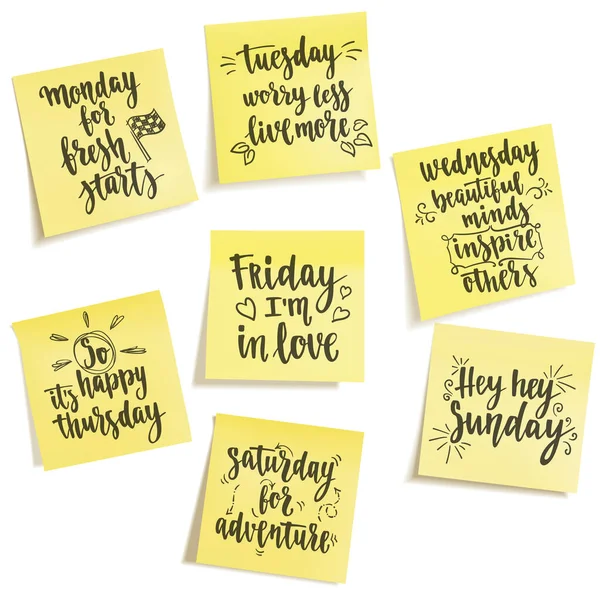 Monday
for
fresh
starts
Tuesday
worry less
live more
Wednesday
beautiful
minds
inspire
others
Friday
I'm
in love
So
it's happy
thursday
Hey hey
Sunday
Saturday
for
adventure